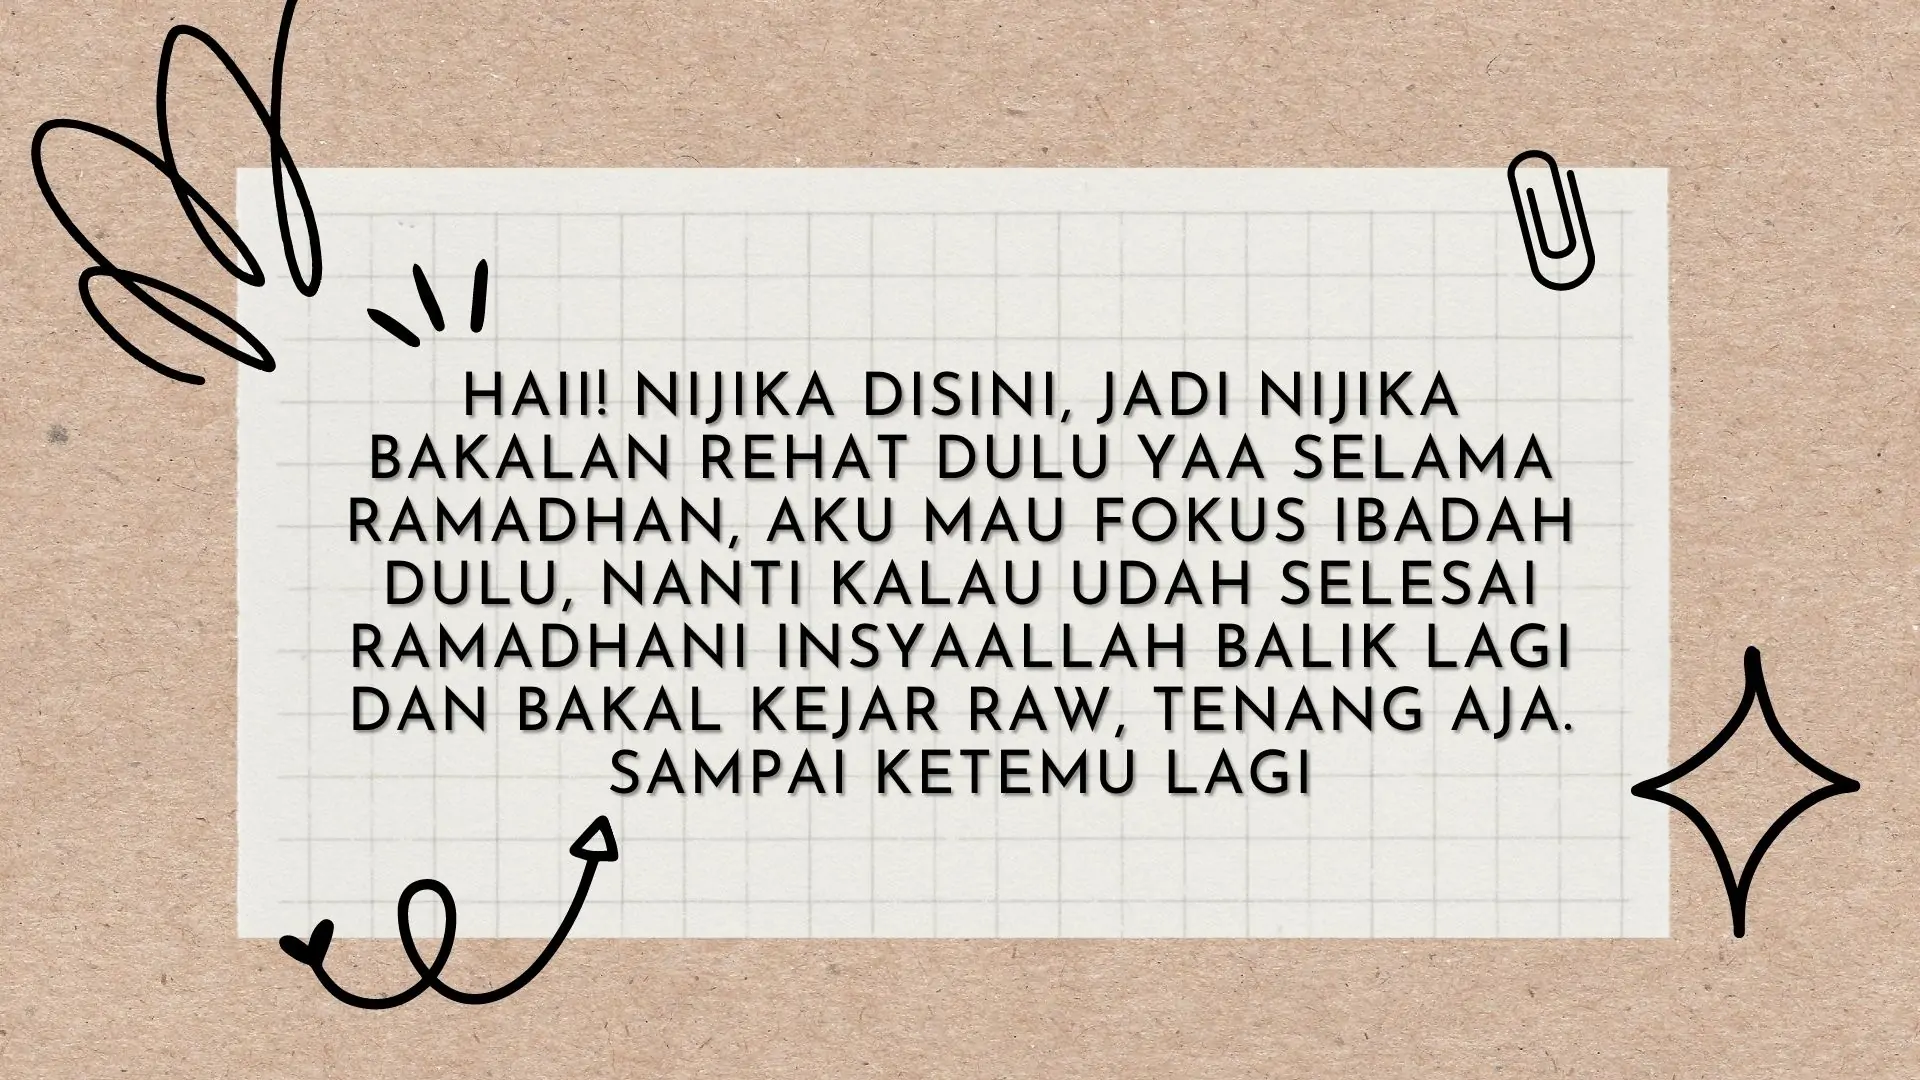 HAII! NIJIKA DISINI, JADI NIJIKA
BAKALAN REHAT DULU YAA SELAMA
RAMADHAN, AKU MAU FOKUS IBADAH
DULU, NANTI KALAU UDAH SELESAI
RAMADHANI INSYAALLAH BALIK LAGI
DAN BAKAL KEJAR RAW, TENANG AJA.
SAMPAI KETEMU LAGI